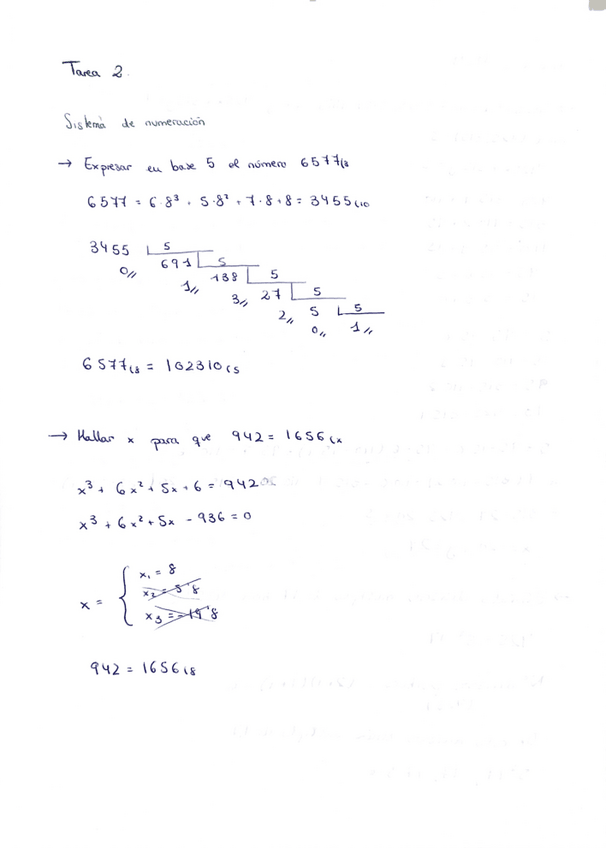 Tarea 2.
Sistema de numeración
→ Expresar en base 5 el número 6577(8
6577 = 6·8³ + 5·8² + 7·8+8 = 3455(10
3455 5
0,, 691 5
1,, 138 5
3,, 27 5
2,, 5 5
0,, 1,,
6577(8 = 102310(5
→ Hallar x para que 942 = 1656(x
x³ + 6x² + 5x + 6 = 942
x³ + 6x² + 5x - 936 = 0
x =
x₁ = 8
942 = 1656(8